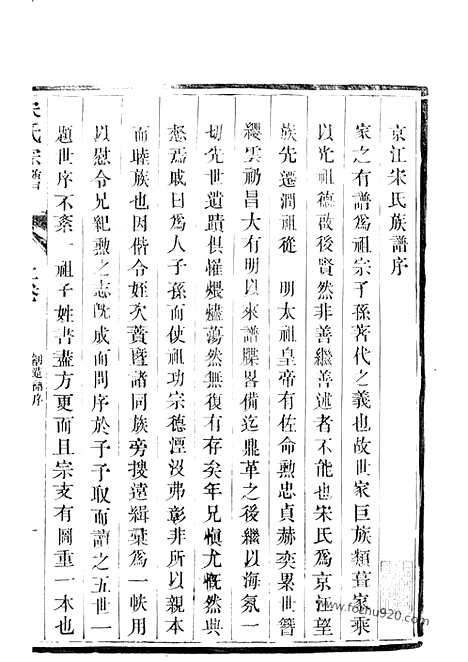 京江宋氏族譜序
家之有譜爲祖宗子孫著代之義也故世家巨族類葺家乘
以光祖德啟後賢然非善繼善述者不能也宋氏爲京江望
族先遷潤祖從 明太祖皇帝有佐命勲忠貞赫奕累世簪
纓雲礽昌大有明以來譜牒畧備迄鼎革之後繼以海氛一
切先世遺蹟俱罹煨燼蕩然無復有存矣年兄愼尤慨然典
怒焉戚曰爲人子孫而使祖功宗德湮沒弗彰非所以親本
而睦族也因偕令姪次蕡暨諸同族旁搜遠緝彚爲一帙用
以慰令兄紀勲之志旣成而問序於予予取而讀之五世一
題世序不紊一祖子姓書盡方更而且宗支有圖重一本也
宋氏宗譜
上卷
創造譜序
一
www.foehu920.com